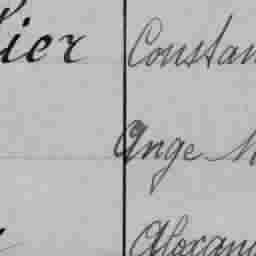 lier Constan
Ange M
Alexand